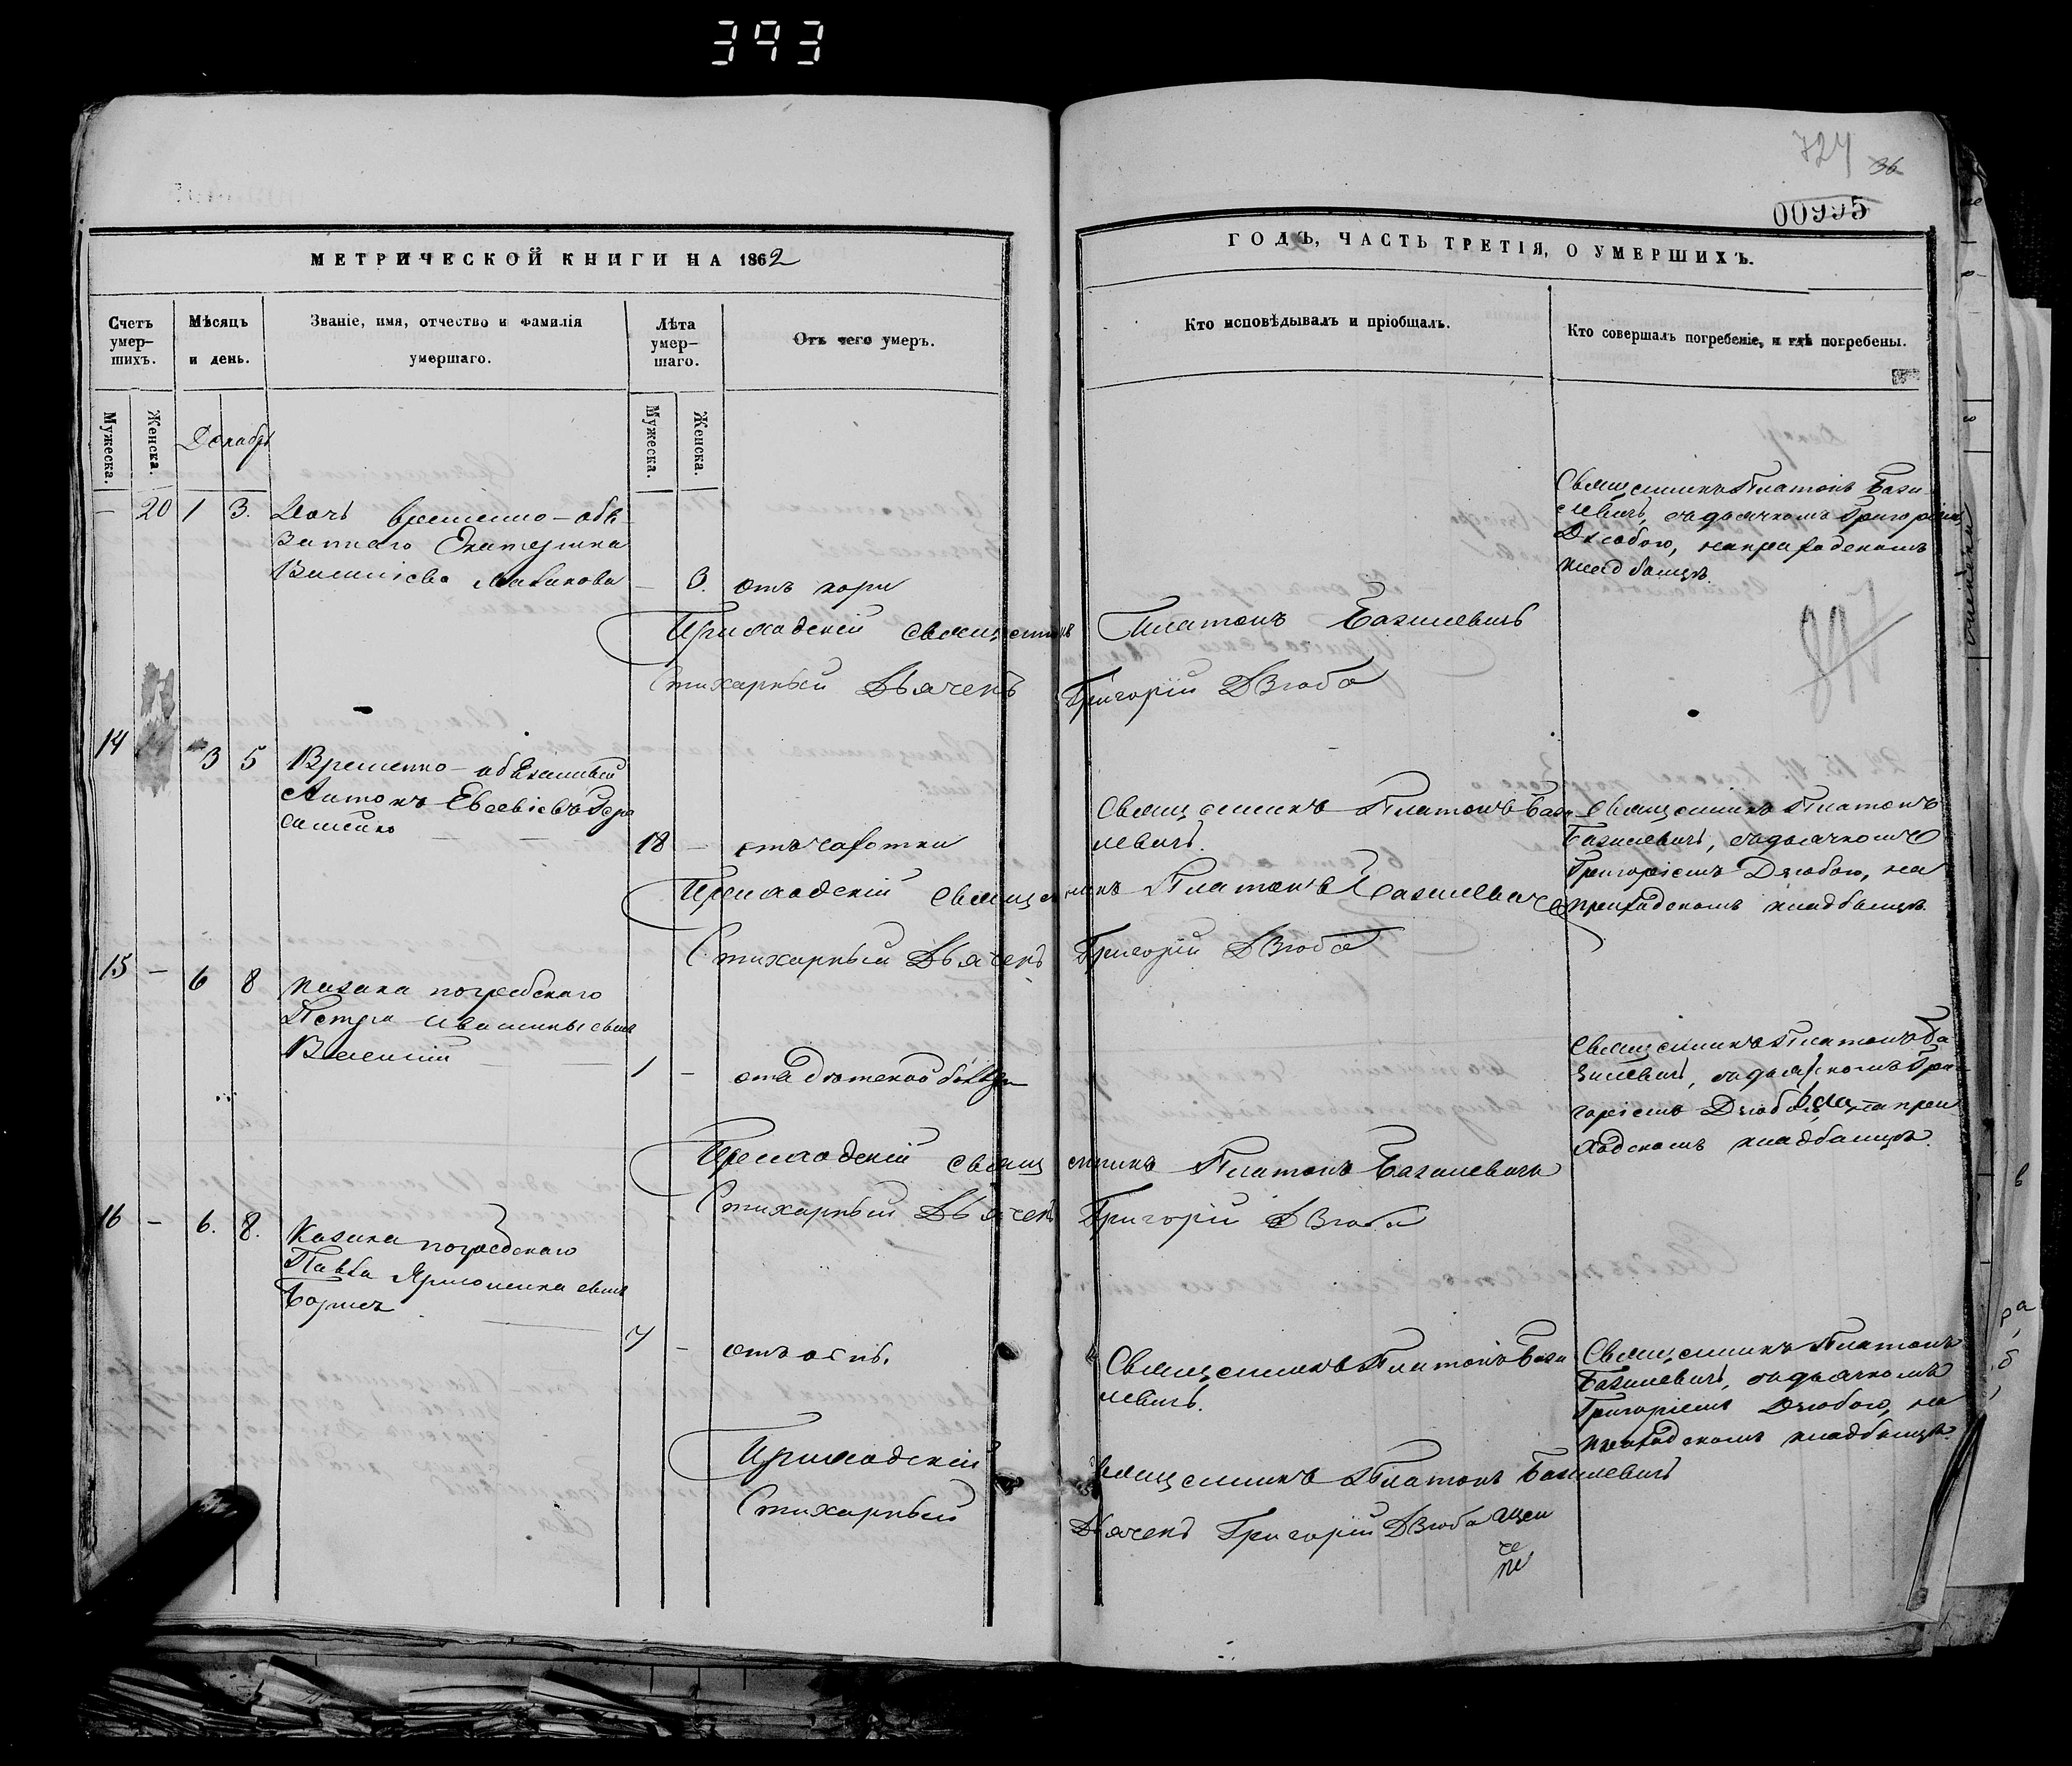 393
724 36
00995
МЕТРИЧЕСКОЙ КНИГИ НА 1862
ГОДЪ, ЧАСТЬ ТРЕТІЯ, О УМЕРШИХЪ.
Счетъ умер-
шихъ.
Мѣсяцъ
и день.
Званіе, имя, отчество и фамилія
умершаго.
Лѣта
умер-
шаго.
Отъ чего умеръ.
Кто исповѣдывалъ и пріобщалъ.
Кто совершалъ погребеніе, и гдѣ погребены.
Мужеска.
Женска.
Декабрь
Мужеска.
Женска.
— 20 1 3. Дочь временно-обя-
заннаго Екатерина
— 3. отъ кори
Священникъ Платонъ Бази-
левичъ, съ дьячкомъ Григоріемъ
Дзюбою, на приходскомъ
кладбищѣ.
Приходскій священникъ Платонъ Базилевичъ
Стихарный Дьячекъ Григорій Дзюба
14 3 5 Временно-обязанный
Антонъ Евсевіевъ Гера
сименко
18 — отъ чахотки
Священникъ Платонъ Бази-
левичъ.
Священникъ Платонъ
Базилевичъ, съ дьячкомъ
Григоріемъ Дзюбою, на
приходскомъ кладбищѣ.
Приходскій священникъ Платонъ Базилевичъ
Стихарный Дьячекъ Григорій Дзюба
15 — 6 8 Козака погребскаго
Петра Ивашины сынъ
1 —
Священникъ Платонъ Ба
зилевичъ, съ дьячкомъ Гри-
горіемъ Дзюбою, на при
ходскомъ кладбищѣ.
Приходскій священникъ Платонъ Базилевичъ
Стихарный Дьячекъ Григорій Дзюба
16 — 6. 8. Козака погребскаго
Павла Ярмоленка сынъ
Борисъ
7 — отъ оспы.
Священникъ Платонъ Бази
левичъ.
Священникъ Платонъ
Базилевичъ, съ дьячкомъ
Григоріемъ Дзюбою, на
приходскомъ кладбищѣ.
Приходскій священникъ Платонъ Базилевичъ
Стихарный Дьячекъ Григорій Дзюба